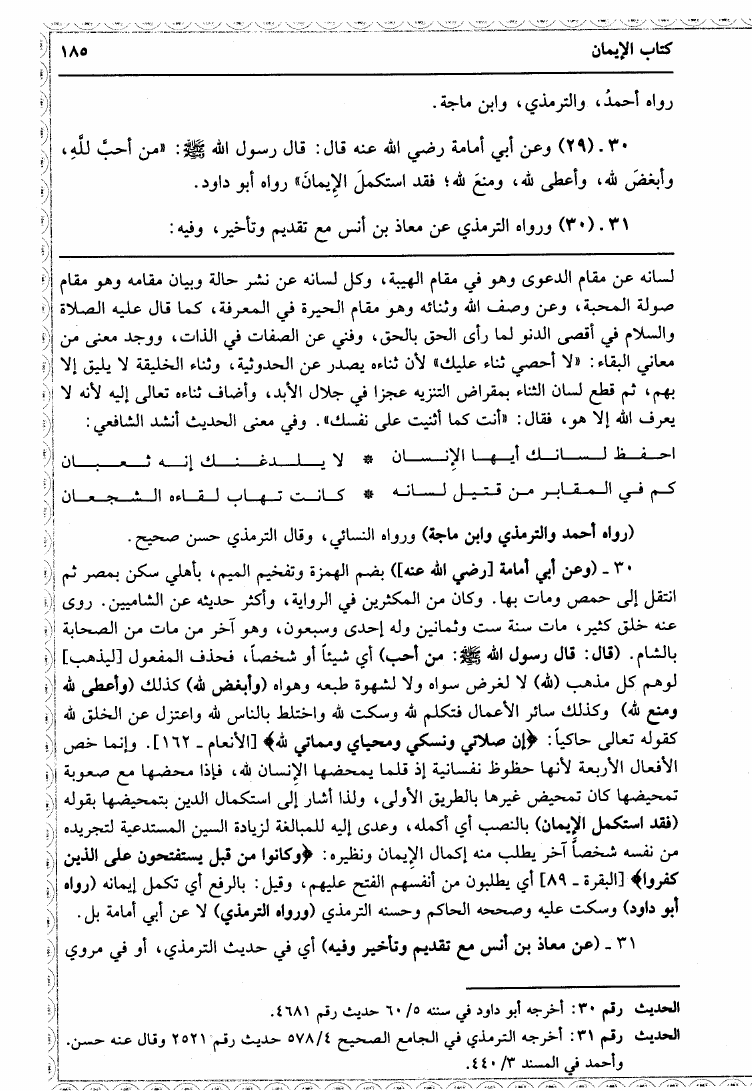 كتاب الإيمان
١٨٥
رواه أحمدُ، والترمذي، وابن ماجة.
٣٠ ـ (٢٩) وعن أبي أمامة رضي الله عنه قال: قال رسول الله ﷺ: «من أحبَّ للَّهِ،
وأبغضَ لله، وأعطى لله، ومنعَ لله؛ فقد استكملَ الإِيمانَ» رواه أبو داود.
٣١ ـ (٣٠) ورواه الترمذي عن معاذ بن أنس مع تقديم وتأخير، وفيه:
لسانه عن مقام الدعوى وهو في مقام الهيبة، وكل لسانه عن نشر حالة وبيان مقامه وهو مقام
صولة المحبة، وعن وصف الله وثنائه وهو مقام الحيرة في المعرفة، كما قال عليه الصلاة
والسلام في أقصى الدنو لما رأى الحق بالحق، وفني عن الصفات في الذات، ووجد معنى من
معاني البقاء: «لا أحصي ثناء عليك» لأن ثناءه يصدر عن الحدوثية، وثناء الخليقة لا يليق إلا
بهم، ثم قطع لسان الثناء بمقراض التنزيه عجزا في جلال الأبد، وأضاف ثناءه تعالى إليه لأنه لا
يعرف الله إلا هو، فقال: «أنت كما أثنيت على نفسك». وفي معنى الحديث أنشد الشافعي:
احفظ لسانك أيها الإنسان * لا يلدغنك إنه ثعبان
كم في المقابر من قتيل لسانه * كانت تهاب لقاءه الشجعان
(رواه أحمد والترمذي وابن ماجة) ورواه النسائي، وقال الترمذي حسن صحيح.
٣٠ ـ (وعن أبي أمامة [رضي الله عنه]) بضم الهمزة وتفخيم الميم، بأهلي سكن بمصر ثم
انتقل إلى حمص ومات بها. وكان من المكثرين في الرواية، وأكثر حديثه عن الشاميين. روى
عنه خلق كثير، مات سنة ست وثمانين وله إحدى وسبعون، وهو آخر من مات من الصحابة
بالشام. (قال: قال رسول الله ﷺ: من أحب) أي شيئاً أو شخصاً، فحذف المفعول [ليذهب]
لوهم كل مذهب (لله) لا لغرض سواه ولا لشهوة طبعه وهواه (وأبغض لله) كذلك (وأعطى لله
ومنع لله) وكذلك سائر الأعمال فتكلم لله وسكت لله واختلط بالناس لله واعتزل عن الخلق لله
كقوله تعالى حاكياً: ﴿إن صلاتي ونسكي ومحياي ومماتي لله﴾ [الأنعام ـ ١٦٢]. وإنما خص
الأفعال الأربعة لأنها حظوظ نفسانية إذ قلما يمحضها الإنسان لله، فإذا محضها مع صعوبة
تمحيضها كان تمحيض غيرها بالطريق الأولى، ولذا أشار إلى استكمال الدين بتمحيضها بقوله
(فقد استكمل الإيمان) بالنصب أي أكمله، وعدى إليه للمبالغة لزيادة السين المستدعية لتجريده
من نفسه شخصاً آخر يطلب منه إكمال الإيمان ونظيره: ﴿وكانوا من قبل يستفتحون على الذين
كفروا﴾ [البقرة ـ ٨٩] أي يطلبون من أنفسهم الفتح عليهم، وقيل: بالرفع أي تكمل إيمانه (رواه
أبو داود) وسكت عليه وصححه الحاكم وحسنه الترمذي (ورواه الترمذي) لا عن أبي أمامة بل.
٣١ ـ (عن معاذ بن أنس مع تقديم وتأخير وفيه) أي في حديث الترمذي، أو في مروي
الحديث رقم ٣٠: أخرجه أبو داود في سننه ٥/ ٦٠ حديث رقم ٤٦٨١.
الحديث رقم ٣١: أخرجه الترمذي في الجامع الصحيح ٤/ ٥٧٨ حديث رقم ٢٥٢١ وقال عنه حسن.
وأحمد في المسند ٣/ ٤٤٠.